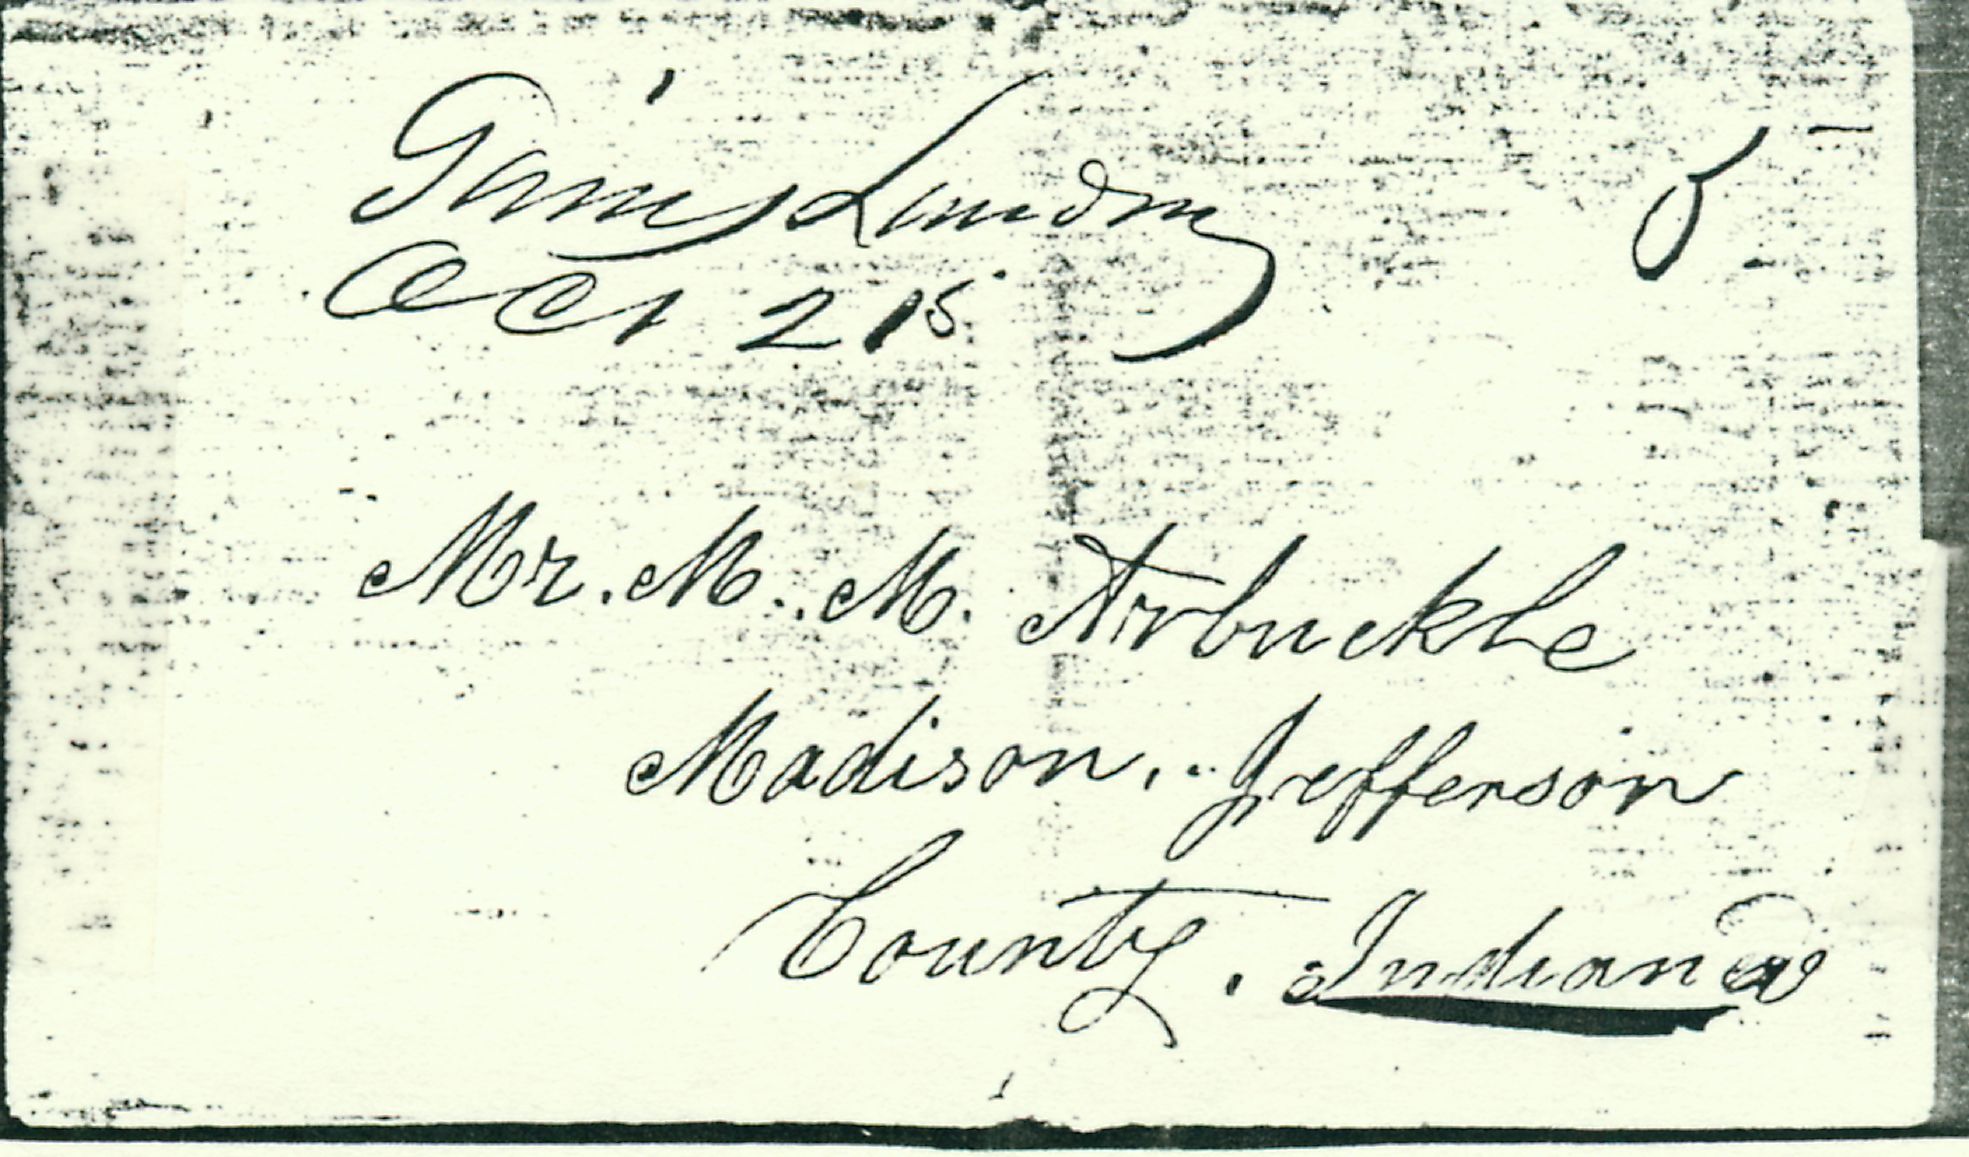 Gains Landing 5
Oct 21s
Mr. M. M. Arbuckle
Madison, Jefferson
County. Indiana